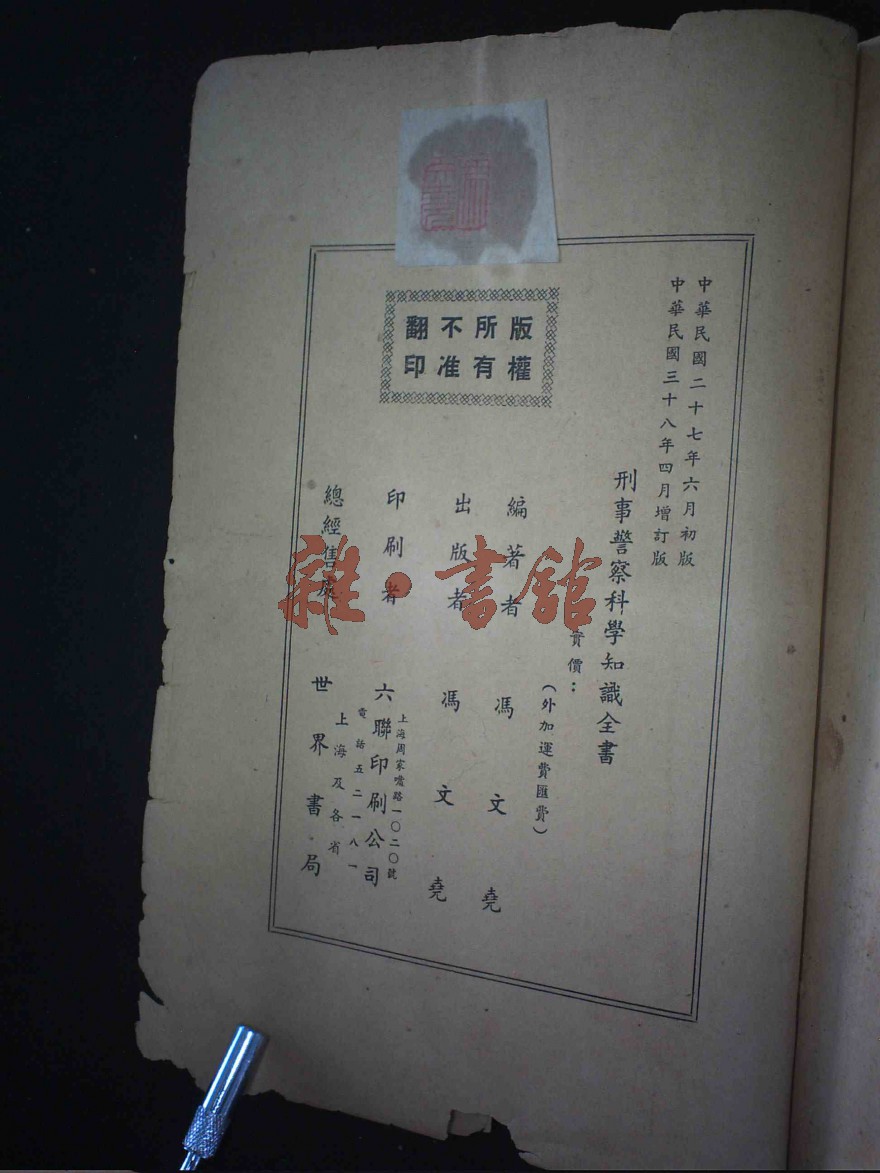 中華民國二十七年六月初版
中華民國三十八年四月增訂版
刑事警察科學知識全書
實價：
（外加運費匯費）
編著者 馮文堯
出版者 馮文堯
印刷者 六聯印刷公司
上海周家嘴路一〇二〇號
電話五二一八一
總經售處 世界書局
上海及各省
版權所有
不准翻印
雜·書館